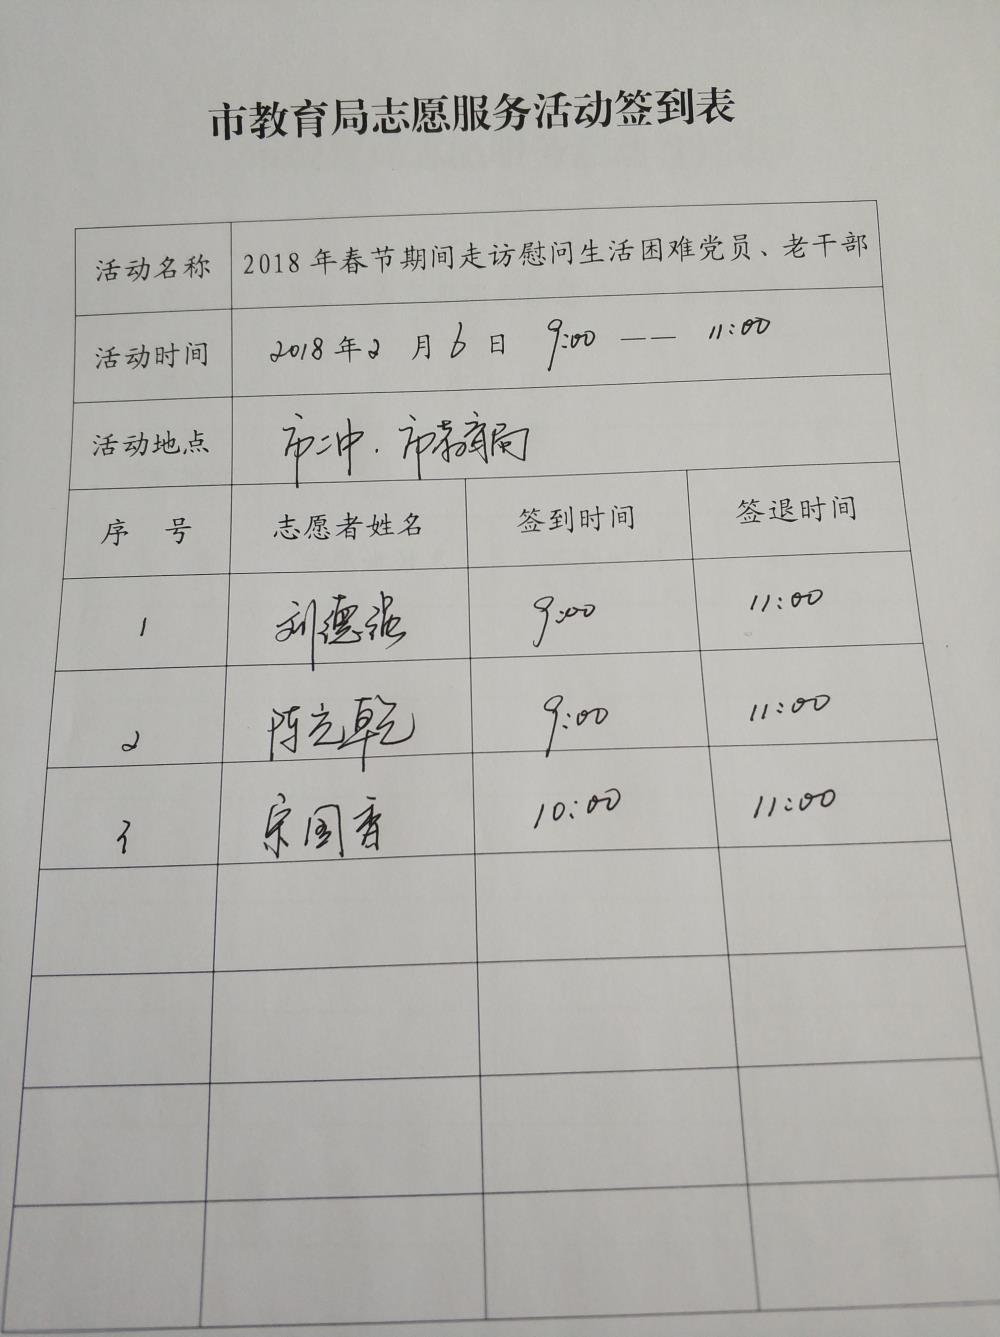 市教育局志愿服务活动签到表
活动名称 2018年春节期间走访慰问生活困难党员、老干部
活动时间 2018年2月6日 9:00 —— 11:00
活动地点 市二中.市教育局
序号 志愿者姓名 签到时间 签退时间
1 刘德强 9:00 11:00
2 陈立乾 9:00 11:00
3 宋国香 10:00 11:00